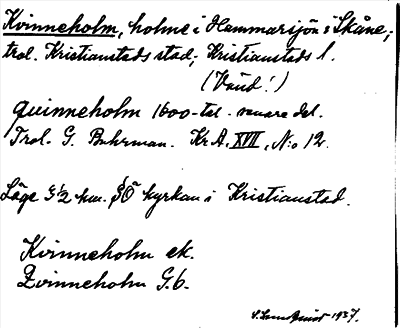 Kvinneholm, holme i Hammarsjön i Skåne;
trol. Kristianstads stad, Kristianstads l.
(Vänd!)
quinneholm 1600-tal senare del.
Trol. G. Buhrman. Kr.A. XVII, N:o 12.
Läge 5 1/2 km. SÖ kyrkan i Kristianstad.
Kvinneholm ek.
Qvinneholm G.b.
S. Lundquist 1937.